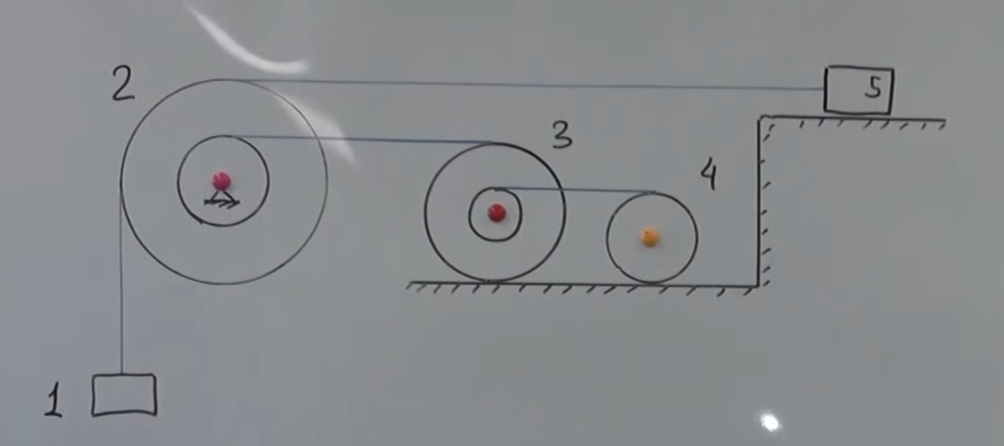 2
5
3
4
1